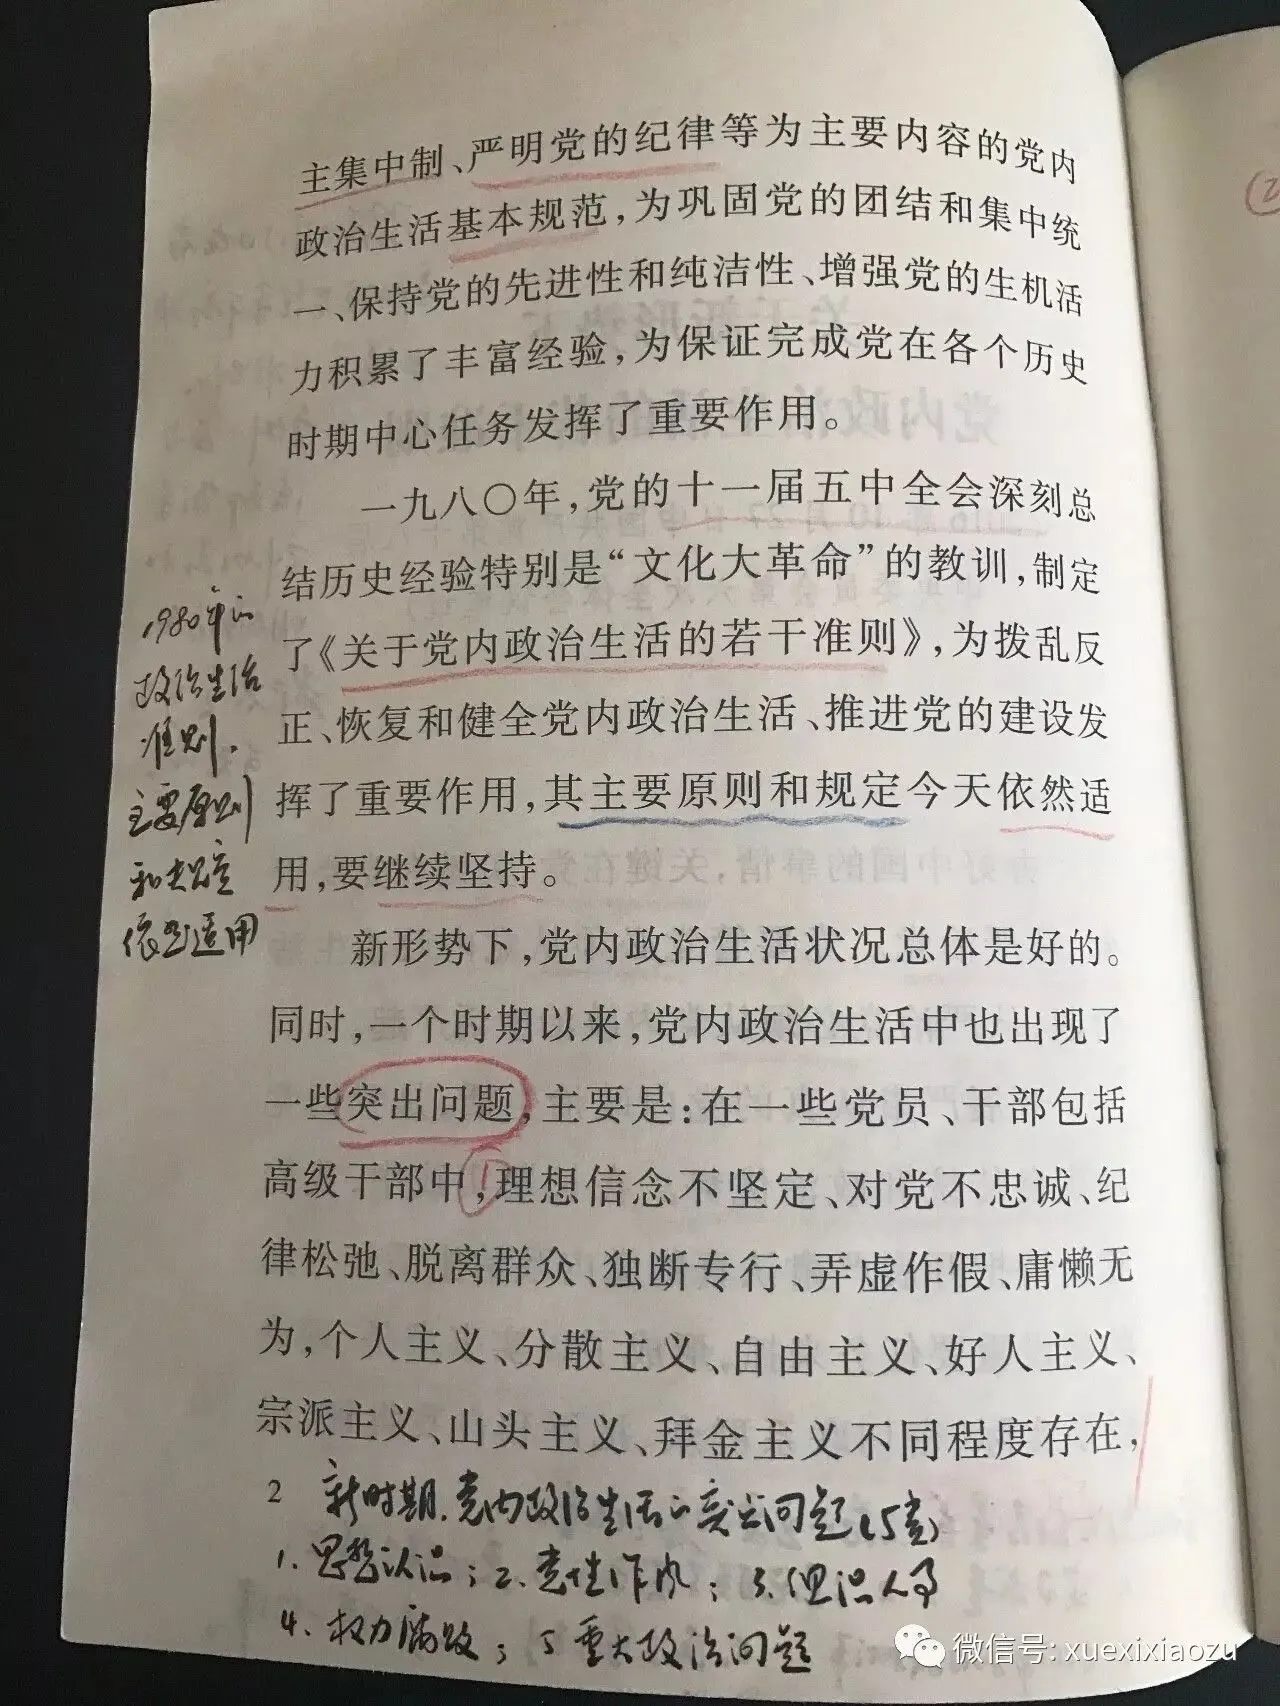 主集中制、严明党的纪律等为主要内容的党内
政治生活基本规范，为巩固党的团结和集中统
一、保持党的先进性和纯洁性、增强党的生机活
力积累了丰富经验，为保证完成党在各个历史
时期中心任务发挥了重要作用。
一九八〇年，党的十一届五中全会深刻总
结历史经验特别是“文化大革命”的教训，制定
了《关于党内政治生活的若干准则》，为拨乱反
正、恢复和健全党内政治生活、推进党的建设发
挥了重要作用，其主要原则和规定今天依然适
用，要继续坚持。
新形势下，党内政治生活状况总体是好的。
同时，一个时期以来，党内政治生活中也出现了
一些突出问题，主要是：在一些党员、干部包括
高级干部中，理想信念不坚定、对党不忠诚、纪
律松弛、脱离群众、独断专行、弄虚作假、庸懒无
为，个人主义、分散主义、自由主义、好人主义、
宗派主义、山头主义、拜金主义不同程度存在，
1980年的
政治生活
准则，
主要原则
和规定
依然适用
①
2
新时期，党内政治生活的突出问题（5类）
1. 思想认识；2. 党性作风；3. 组织人事
4. 权力腐败；5 重大政治问题
微信号: xuexixiaozu